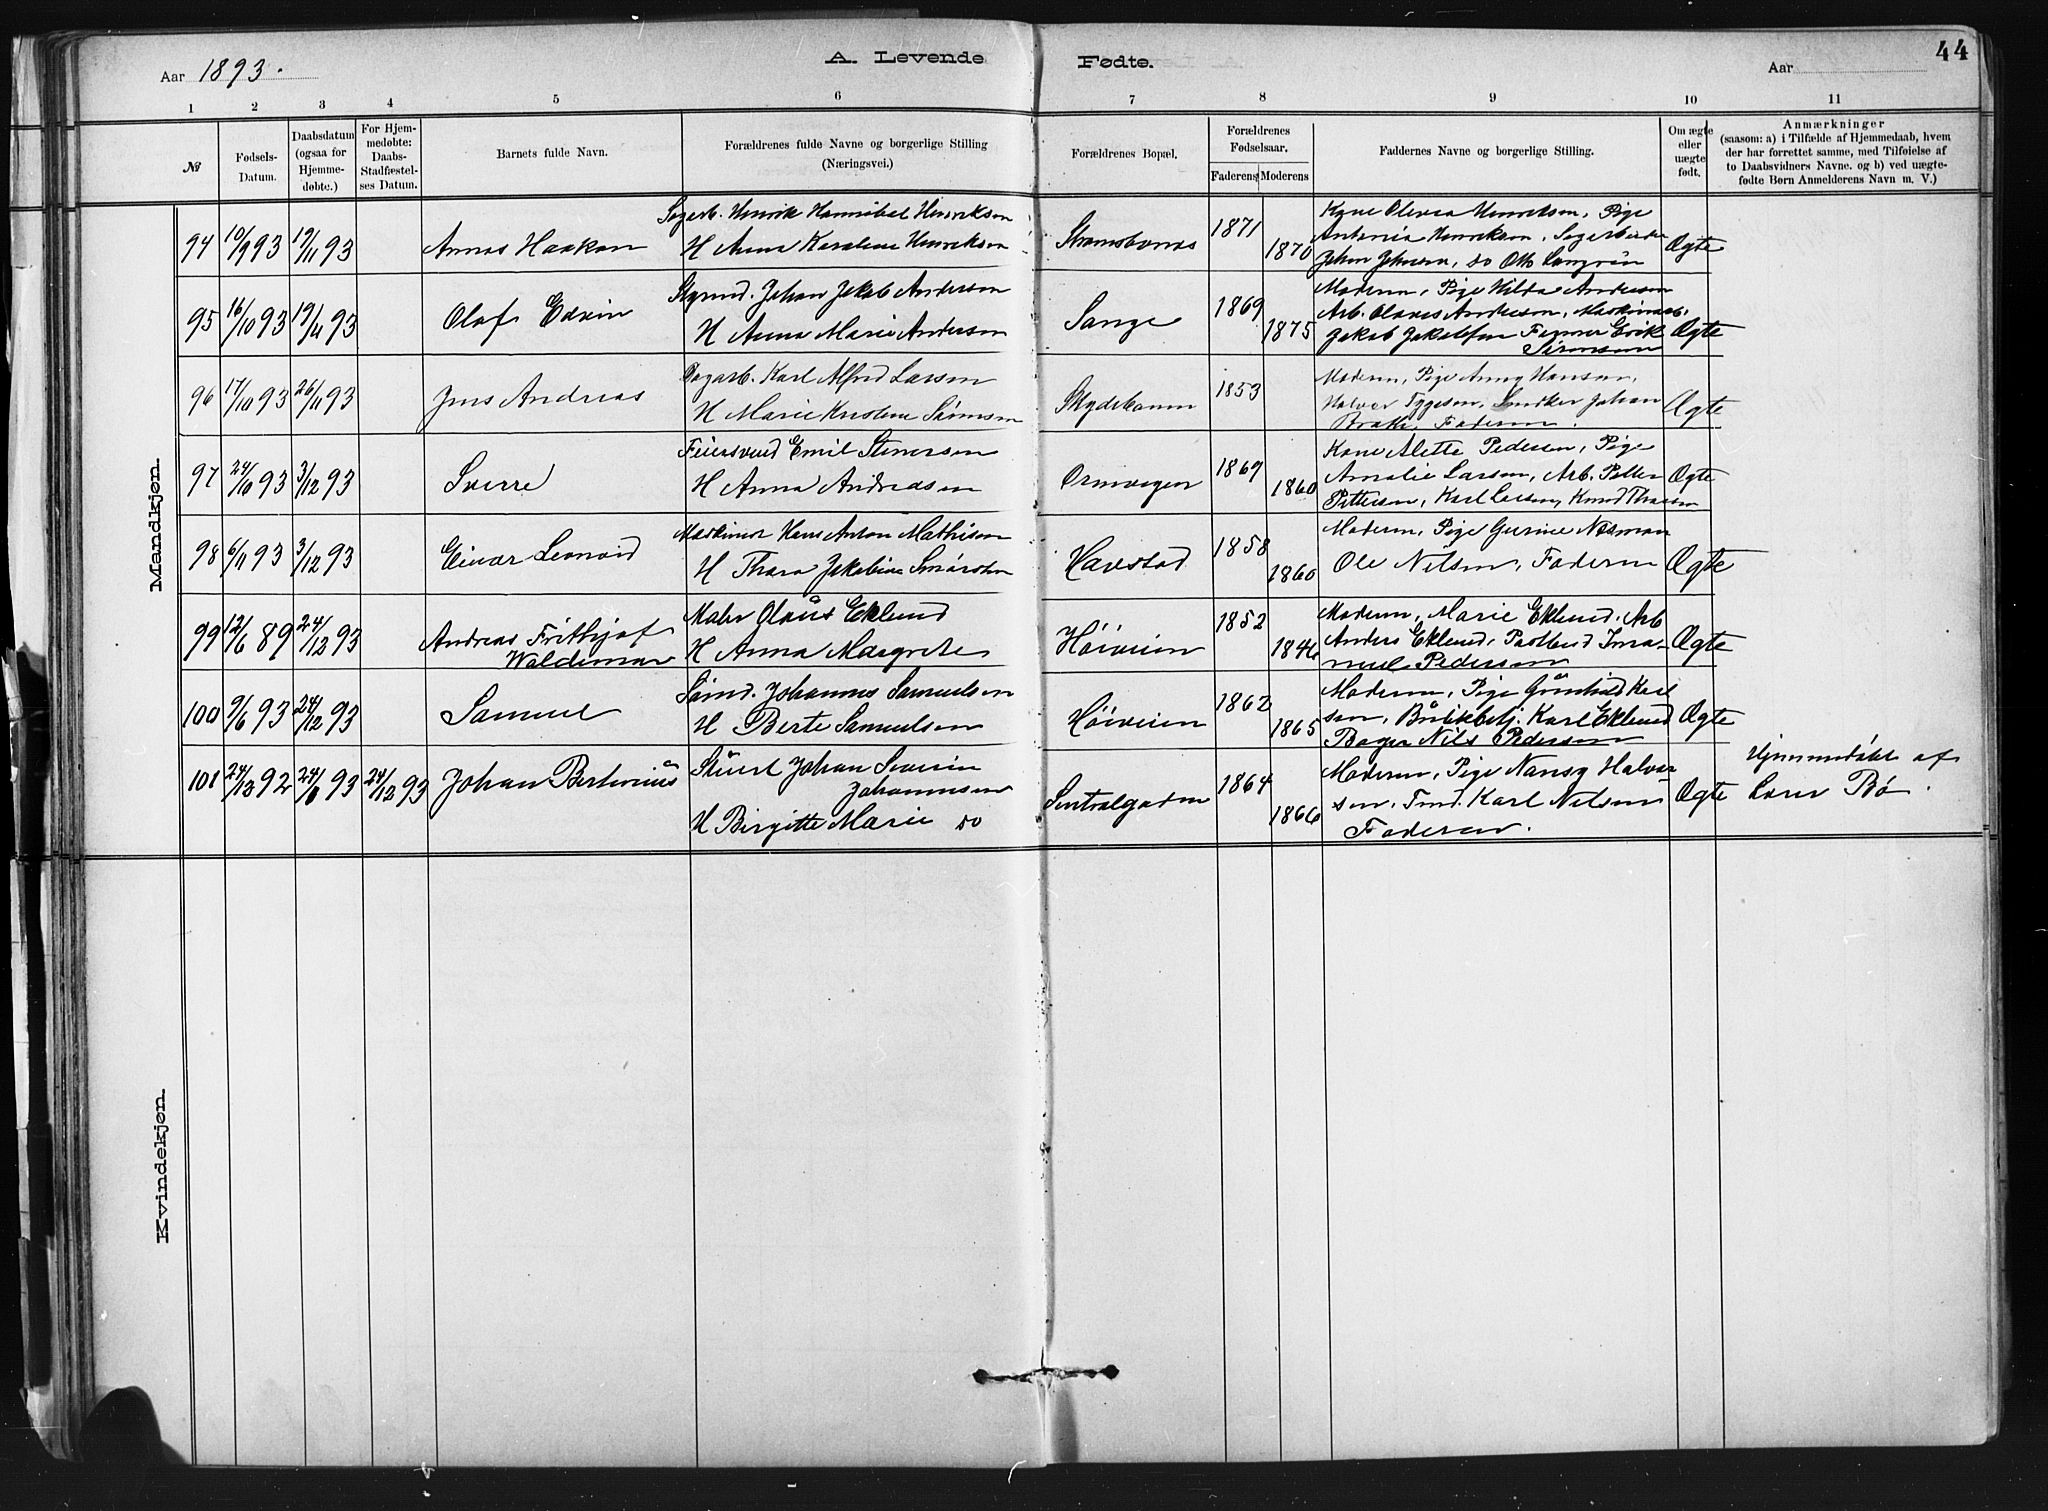 Aar 1893.
A. Levende
Fødte.
Aar
44
1 2 3 4 5 6 7 8 9 10 11
№
Fødsels-
Datum.
Daabsdatum
(ogsaa for
Hjemme-
døbte.)
For Hjem-
medøbte:
Daabs-
Stadfæstel-
ses Datum.
Barnets fulde Navn.
Forældrenes fulde Navne og borgerlige Stilling
(Næringsvei.)
Forældrenes Bopæl.
Forældrenes
Fødselsaar.
Faderens Moderens
Faddernes Navne og borgerlige Stilling.
Om ægte
eller
uægte
født.
Anmærkninger
(saasom: a) i Tilfælde af Hjemmedaab, hvem
der har forrettet samme, med Tilføielse af
to Daabsvidners Navne. og b) ved uægte-
fødte Børn Anmelderens Navn m. V.)
Mandkjøn.
94 10/9 93 19/11 93 Haakon
Sagarb. Henrik Hannibal Henriksen
H Anna Karoline Henriksen
1871 1870
Kone Olevia Henriksen, Pige
Antonia Henriksen, Sagarbeider
Johan Johnsen, do Otto
Ægte
95 16/10 93 19/11 93 Olaf Edvin
Johan Jakob Andersen
H Anna Marie Andersen
Sange 1869 1875
Moderen, Pige Hilda Andersen
Arb. Olaves Andersen, Maskinarb.
Jakob Erik
Simonsen
Ægte
96 17/10 93 26/11 93 Jens Andreas
Sagarb. Karl Alfred Larsen
H Marie Kristine
1853
Moderen, Pige Anny Hansen,
Halvor Tygesen, Snedker Johan
Faderen.
Ægte
97 24/10 93 3/12 93 Sverre
Feiersvend Emil Stenersen
H Anna Andreasen
1869 1860
Kone Alette Pedersen, Pige
Amalie Larsen, Arb. Petter
Pettersen, Karl Larsen, Knud
Ægte
98 6/11 93 3/12 93 Einar Leonard
Maskinist Hans Anton Mathisen
H Thara Jakobine
Havstad 1858 1860
Moderen, Pige Gurine Næsman
Ole Nilsen, Faderen
Ægte
99 12/6 89 24/12 93 Andreas Frithjof
Waldemar
Maler Olaus Eklund
H Anna Margrete
Høiveien 1852 1846
Moderen, Marie Eklund, Arb
Anders Eklund, Postbud Ima-
nuel Pedersen
Ægte
100 9/6 93 24/12 93 Samuel
Sømd. Johannes Samuelsen
H Berte Samuelsen
Høiveien 1862 1865
Moderen, Pige Gunhild Karl
sen, Butikbetj. Karl Eklund
Bager Nils Pedersen
Ægte
101 24/12 92 24/6 93 24/12 93 Johan Bertinius
Stuert Johan Severin
Johannesen
H Birgitte Marie do
Sentralgaarden 1864 1866
Moderen, Pige Nansy Halvor-
sen, Tmd. Karl Nilsen
Faderen.
Ægte
Hjemmedøbt af
Lærer Bø.
Kvindekjøn.